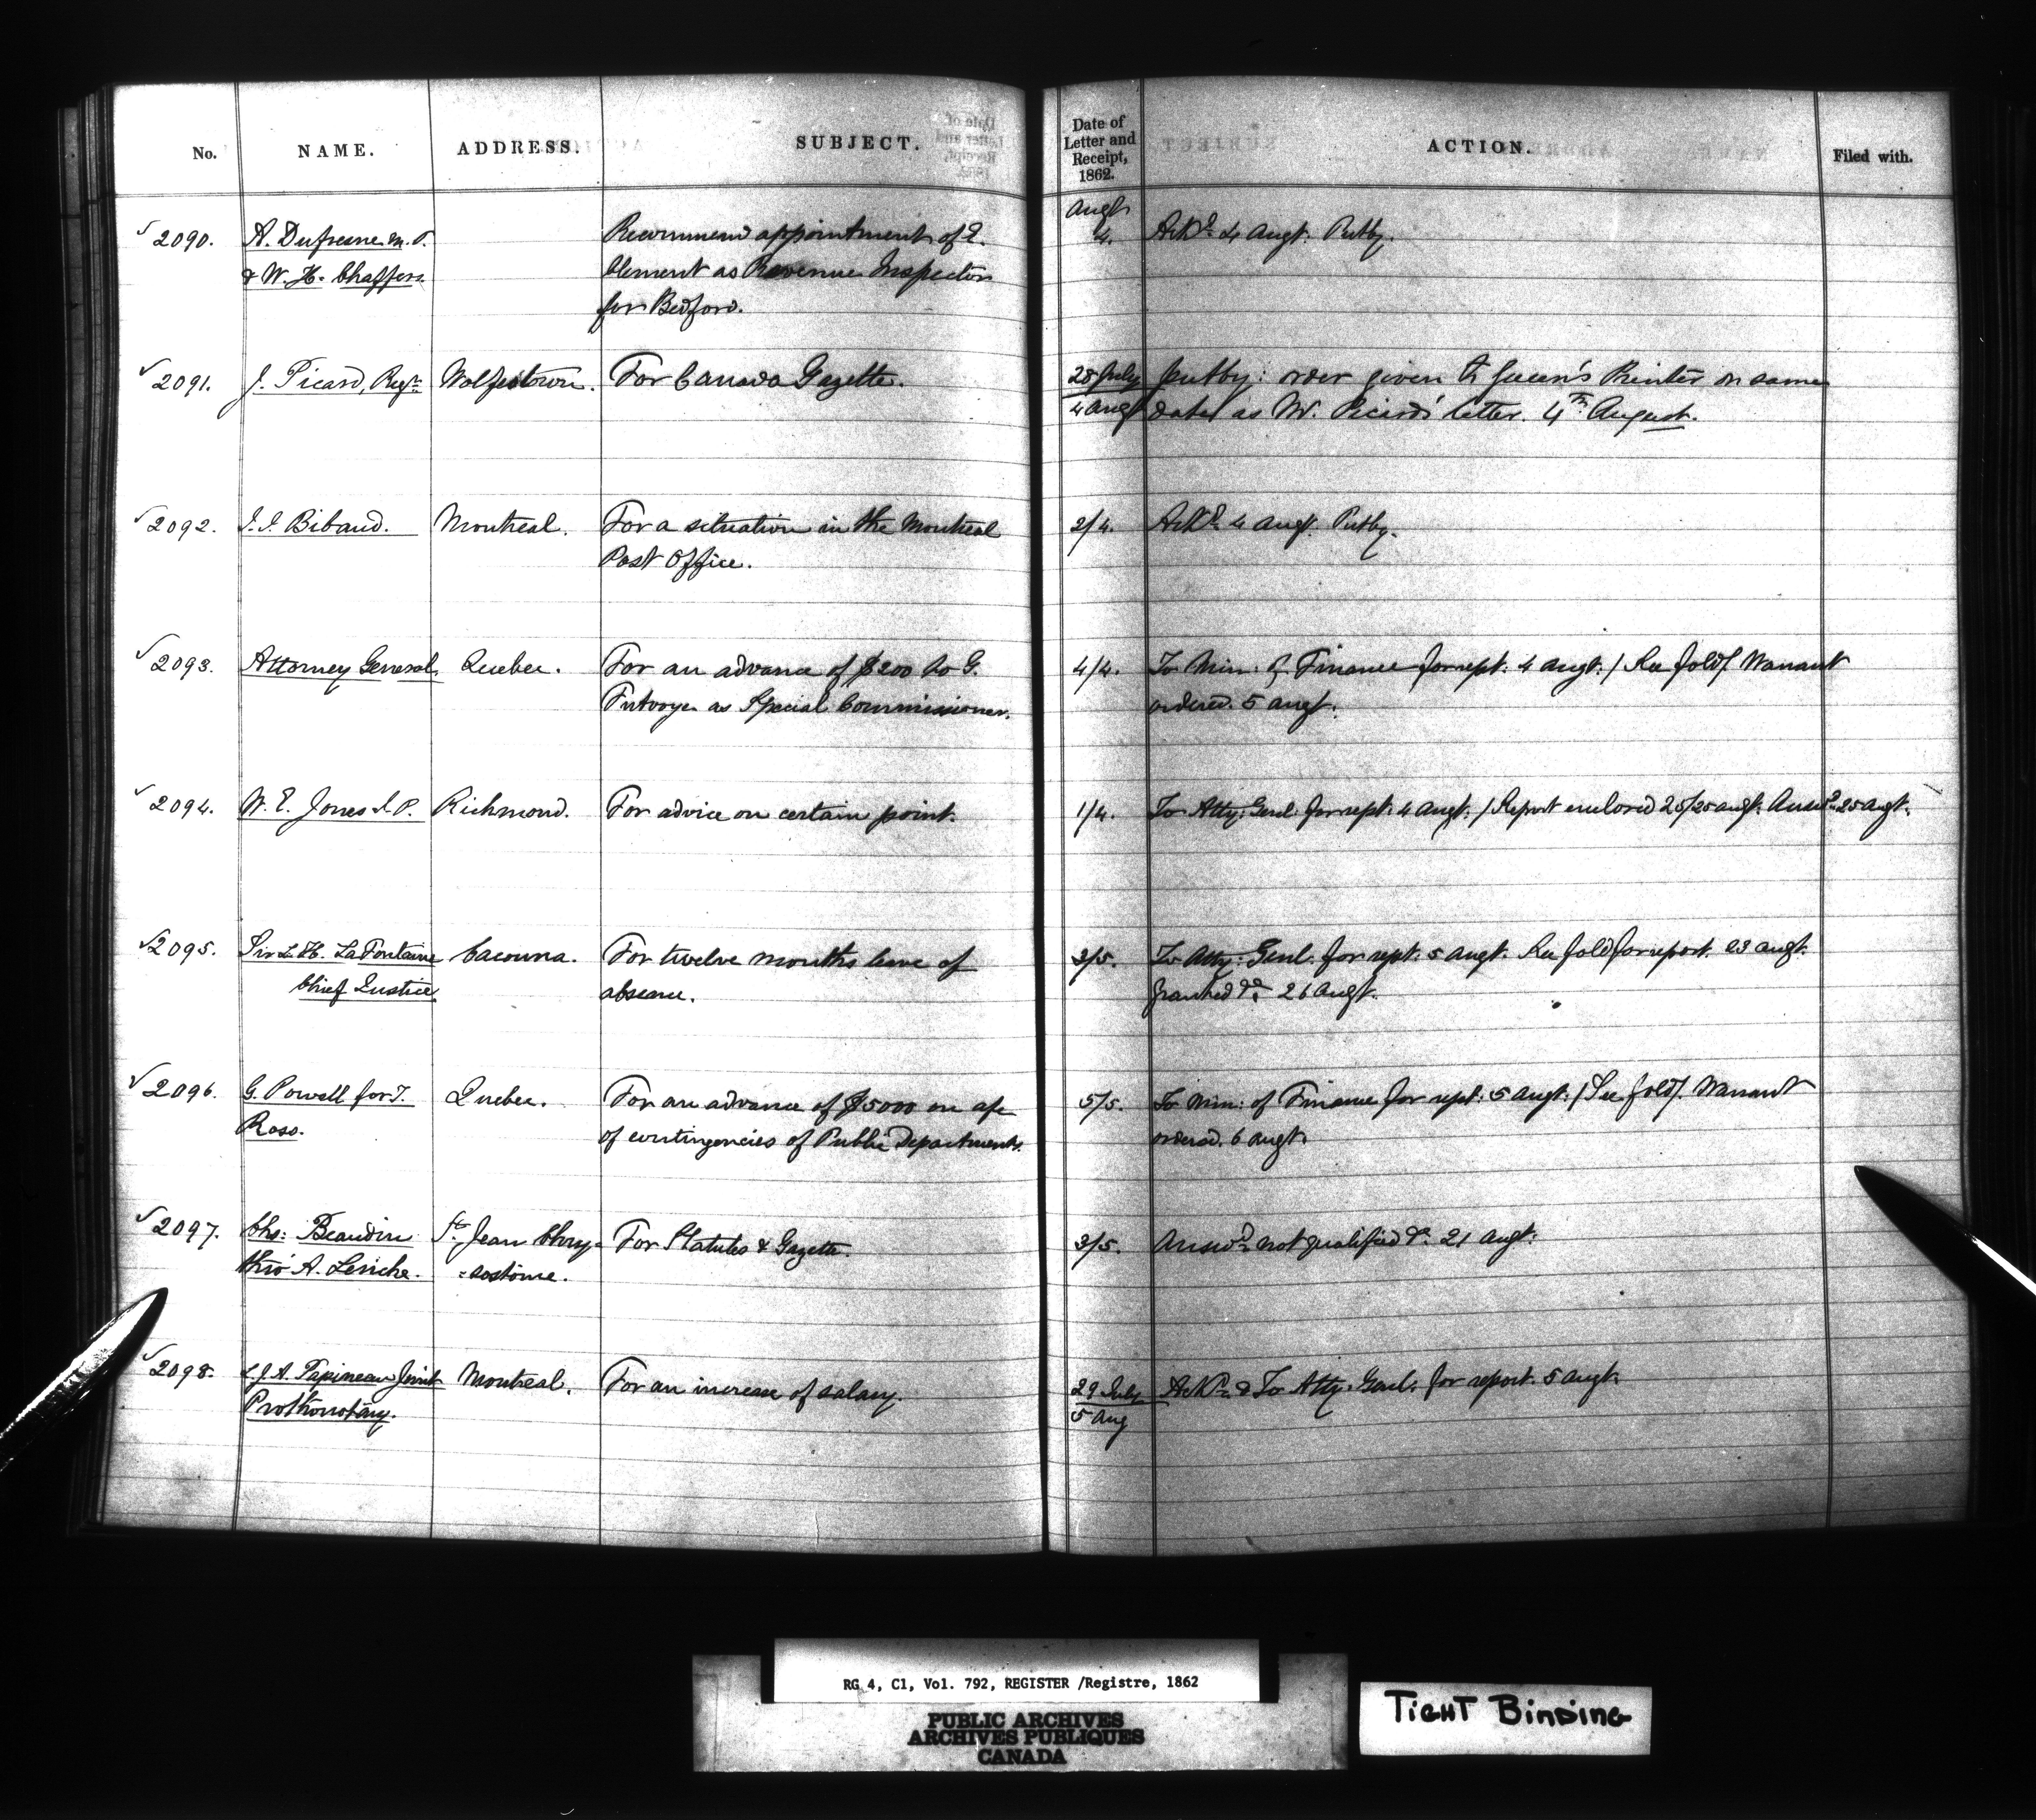 No. NAME. ADDRESS. SUBJECT. Date of Letter and Receipt, 1862. ACTION. Filed with.
Augt
2090. A. Dufresne M.P. Recommend appointment of E. 4. Ackd 4 Augt. Putby.
& W. H. Chaffers Clement as Revenue Inspector
for Bedford.
2091. J. Picard, Regr. Wolfestown. For Canada Gazette. 28 July Putby: order given to Queen's Printer on same
4 Aug date as Mr. Picard's letter. 4th August.
2092. J. J. Bibaud. Montreal. For a situation in the Montreal 2/4. Ackd 4 Augt. Putby.
Post Office.
2093. Attorney General Quebec. For an advance of $200 to G. 4/4. To Min: of Finance for rept. 4 Augt. / See fold/. Warrant
Futvoye as Special Commissioner. ordered. 5 Augt.
2094. W. E. Jones J.P. Richmond. For advice on certain point. 1/4. To Atty: Genl. for rept. 4 Augt. / Report enclosed 25/25 Augt. Answd 25 Augt.
2095. Sir L. H. LaFontaine Cacouna. For twelve months leave of 3/5. To Atty: Genl. for rept. 5 Augt. See fold for report. 23 Augt.
Chief Justice absence. Granted &c. 26 Augt.
2096. G. Powell for T. Quebec. For an advance of $5000 on a/c 5/5. To Min: of Finance for rept: 5 Augt: / See fold/. Warrant
Ross. of contingencies of Public Departments. ordered. 6 Augt.
2097. Chs: Beaudin St. Jean Chry- For Statutes & Gazette. 3/5. Answd not qualified &c. 21 Augt.
thro' A. Leriche. =sostôme.
2098. L. J. A. Papineau Joint Montreal. For an increase of salary. 29 July Ackd & To Atty: Genl: for report. 5 Augt.
Prothonotary. 5 Aug
RG 4, C1, Vol. 792, REGISTER /Registre, 1862
PUBLIC ARCHIVES
ARCHIVES PUBLIQUES
CANADA
TIGHT BINDING